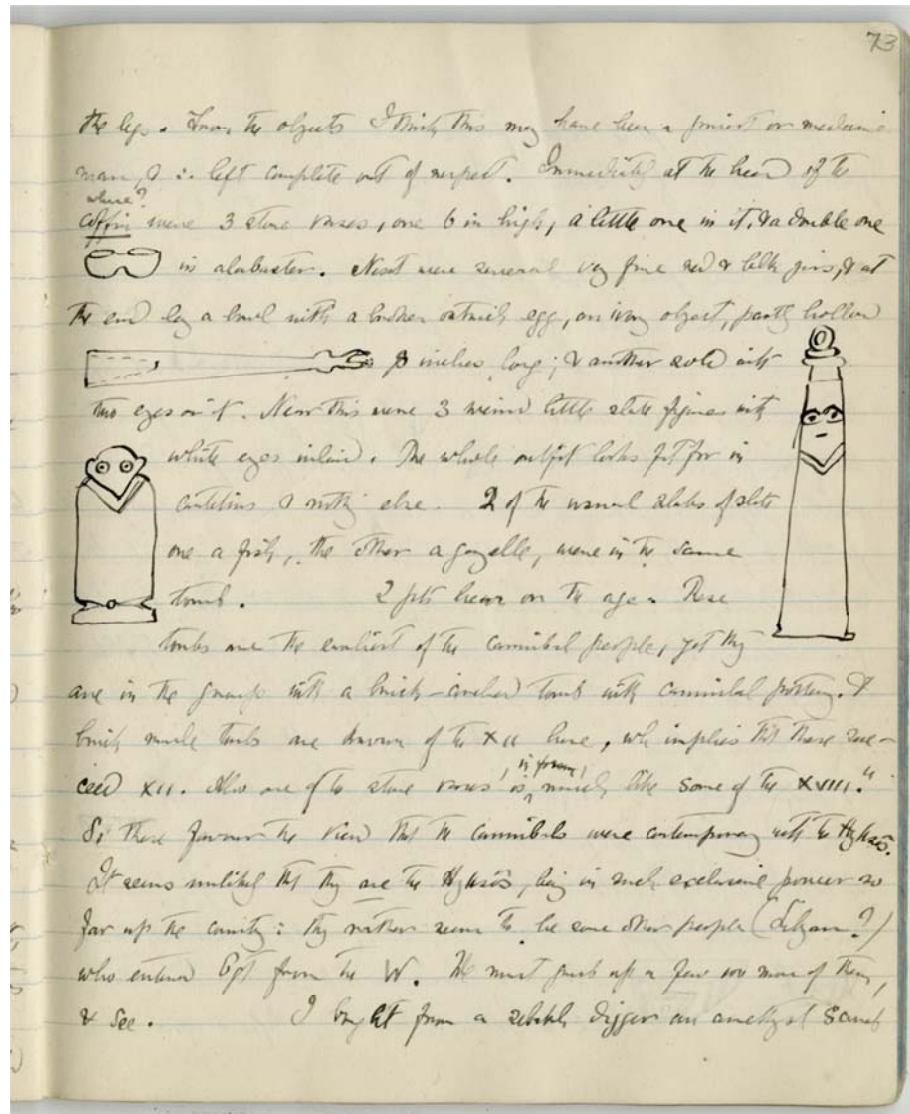 73
the legs. From the objects I think this may have been a priest or medicine
man, & ∴ left complete out of respect. Immediately at the head of the
where?
coffin were 3 stone vases, one 6 in high, a little one in it, & a double one
in alabaster. Next were several very fine red & blk jars, & at
the end lay a bowl with a broken ostrich egg, an ivory object, partly hollow
8 inches long; & another solid with
two eyes on it. Near this were 3 weird little slate figures with
white eyes inlaid. The whole outfit looks fit for in
& nothing else. 2 of the usual slabs of slate
one a fish, the other a gazelle, were in the same
tomb. 2 pts bear on the age. These
tombs are the earliest of the cannibal people, yet they
are in the group with a brick-arched tomb with cannibal pottery. &
brick tombs are known of the XII here, wh implies that these suc-
ceed XII. Also one of the stone vases is, in form, much like some of the XVIII.th
So these favour the view that the cannibals were contemporary with the Hyksos.
It seems unlikely that they are the Hyksos, being in such exclusive power so
far up the country: they rather seem to be some other people (Libyan?)
who entered Egt from the W. We must grub up a few 100 more of them,
& see. I bought from a sebakh digger an amethyst scarab